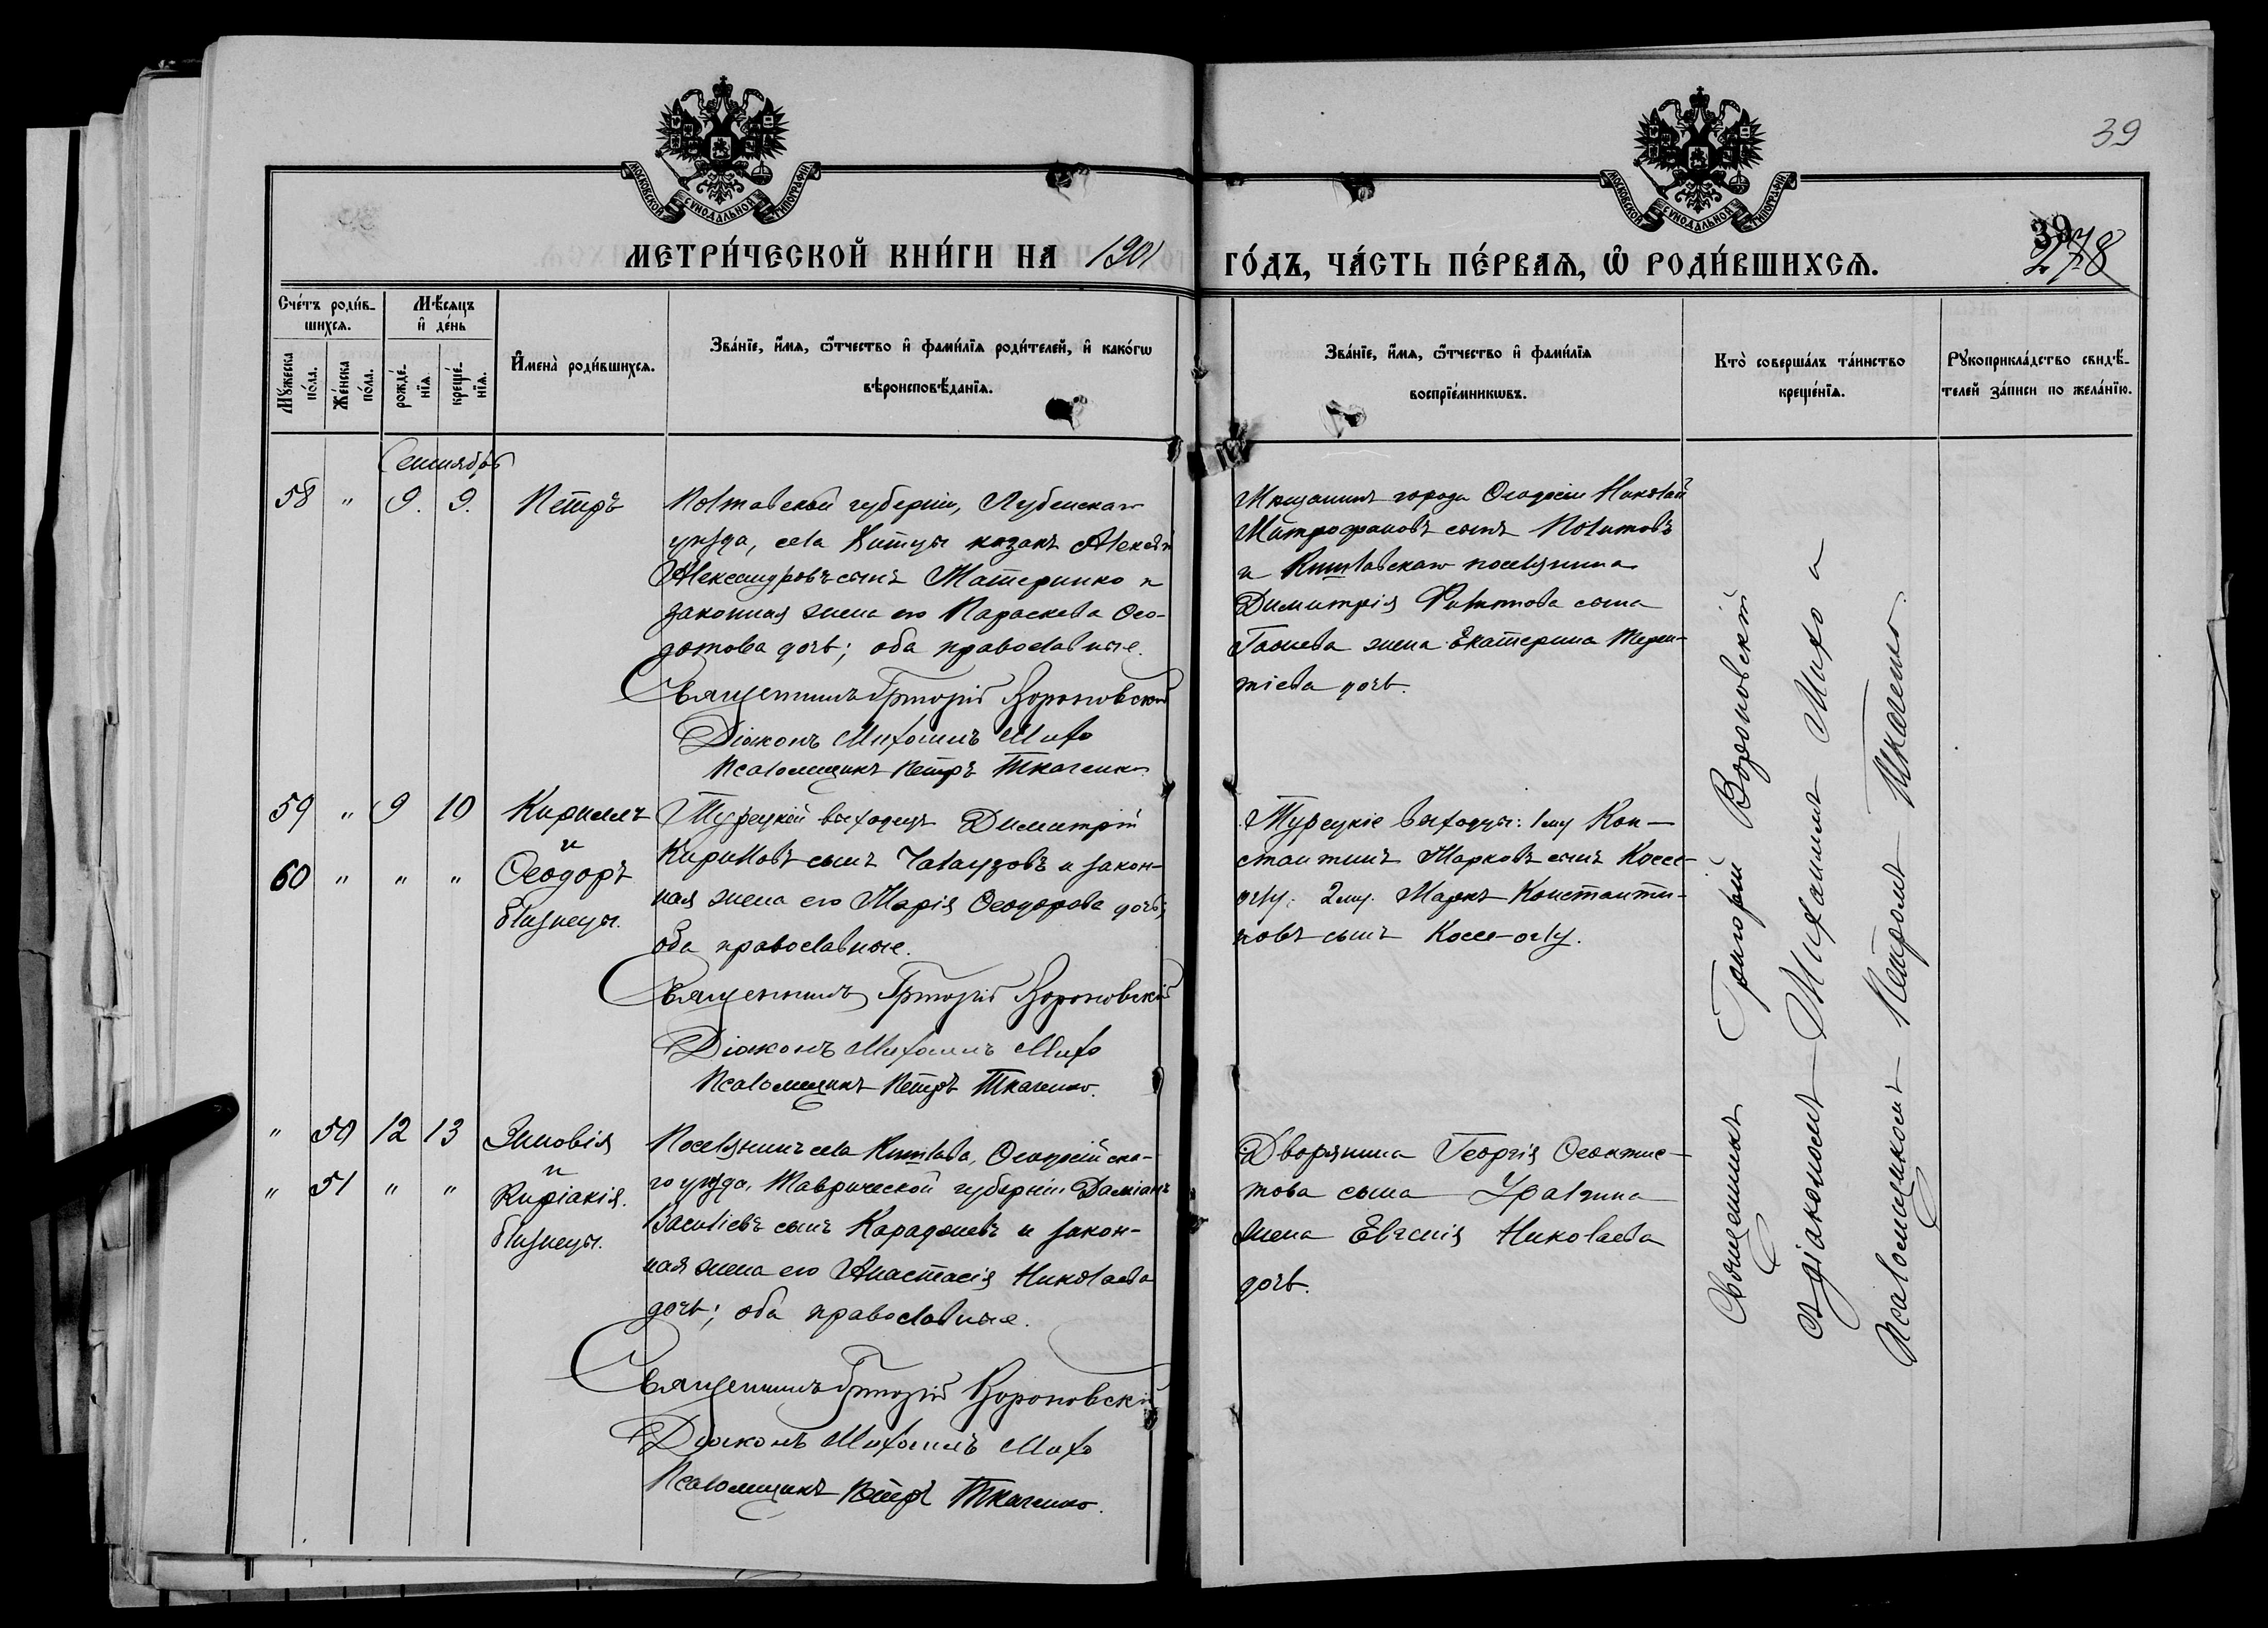 39
МОСКОВСКОЙ СУНОДАЛЬНОЙ ТИПОГРАФІИ
МОСКОВСКОЙ СУНОДАЛЬНОЙ ТИПОГРАФІИ
МЕТРИ́ЧЕСКОЙ КНИ́ГИ НА 1901 ГО́ДЪ, ЧА́СТЬ ПЕ́РВАѦ, Ѡ҆ РОДИ́ВШИХСѦ.
39
278
Сче́тъ роди́в-
шихсѧ.
Мꙋ́жеска по́ла.
Же́нска по́ла.
Мѣ́сѧцъ
и҆ де́нь
рожде́-
нїѧ.
креще́-
нїѧ.
И҆мена̀ роди́вшихсѧ.
Зва́нїе, и҆́мѧ, ѻ҆́тчество и҆ фами́лїѧ роди́телей, и҆ како́гѡ
вѣроисповѣ́данїѧ.
Зва́нїе, и҆́мѧ, ѻ҆́тчество и҆ фами́лїѧ
воспрїе́мникѡвъ.
Кто̀ соверша́лъ та́инство
креще́нїѧ.
Рꙋкоприкла́дство свидѣ́-
телей за́писи по жела́нїю.
Сентябрь
58 " 9. 9. Петръ
Полтавской губерніи, Лубенскаго
уѣзда, села козакъ Алексѣй
Александровъ сынъ Материнко и
законная жена его Параскева Ѳео-
дотова дочь; оба православные.
Священникъ Григорій Вороновскій
Діаконъ Михаилъ Михо
Псаломщикъ Петръ Ткаченко
Мѣщанинъ города Ѳеодосіи Николай
Митрофановъ сынъ Политовъ
и Кишлавскаго поселянина
Димитрія сына
жена Екатерина Терен-
тіева дочь.
59 " 9 10 Кириллъ
и
60 " " " Ѳеодоръ
близнецы.
Турецкій выходецъ Димитрій
Кирилловъ сынъ Чалаузовъ и закон-
ная жена его Марія Ѳеодорова дочь;
оба православные.
Священникъ Григорій Вороновскій
Діаконъ Михаилъ Михо
Псаломщикъ Петръ Ткаченко.
Турецкіе выходцы: 1му Кон-
стантинъ Марковъ сынъ Коссе-
оглу; 2му. Маркъ Константи-
новъ сынъ Коссе-оглу.
" 50 12 13 Зиновія
и
" 51 " " Киріакія.
близнецы.
Поселянинъ села Кишлава, Ѳеодосійска-
го уѣзда, Таврической губерніи Даміанъ
Василіевъ сынъ Караджиевъ и закон-
ная жена его Анастасія Николаева
дочь; оба православные.
Священникъ Григорій Вороновскій
Діаконъ Михаилъ Михо
Псаломщикъ Петръ Ткаченко.
Дворянина Георгія Ѳеоктис-
това сына
жена Евгенія Николаева
дочь.
Священникъ Григорій Вороновскій
съ діакономъ Михаиломъ Михо и
Псаломщикомъ Петромъ Ткаченко.